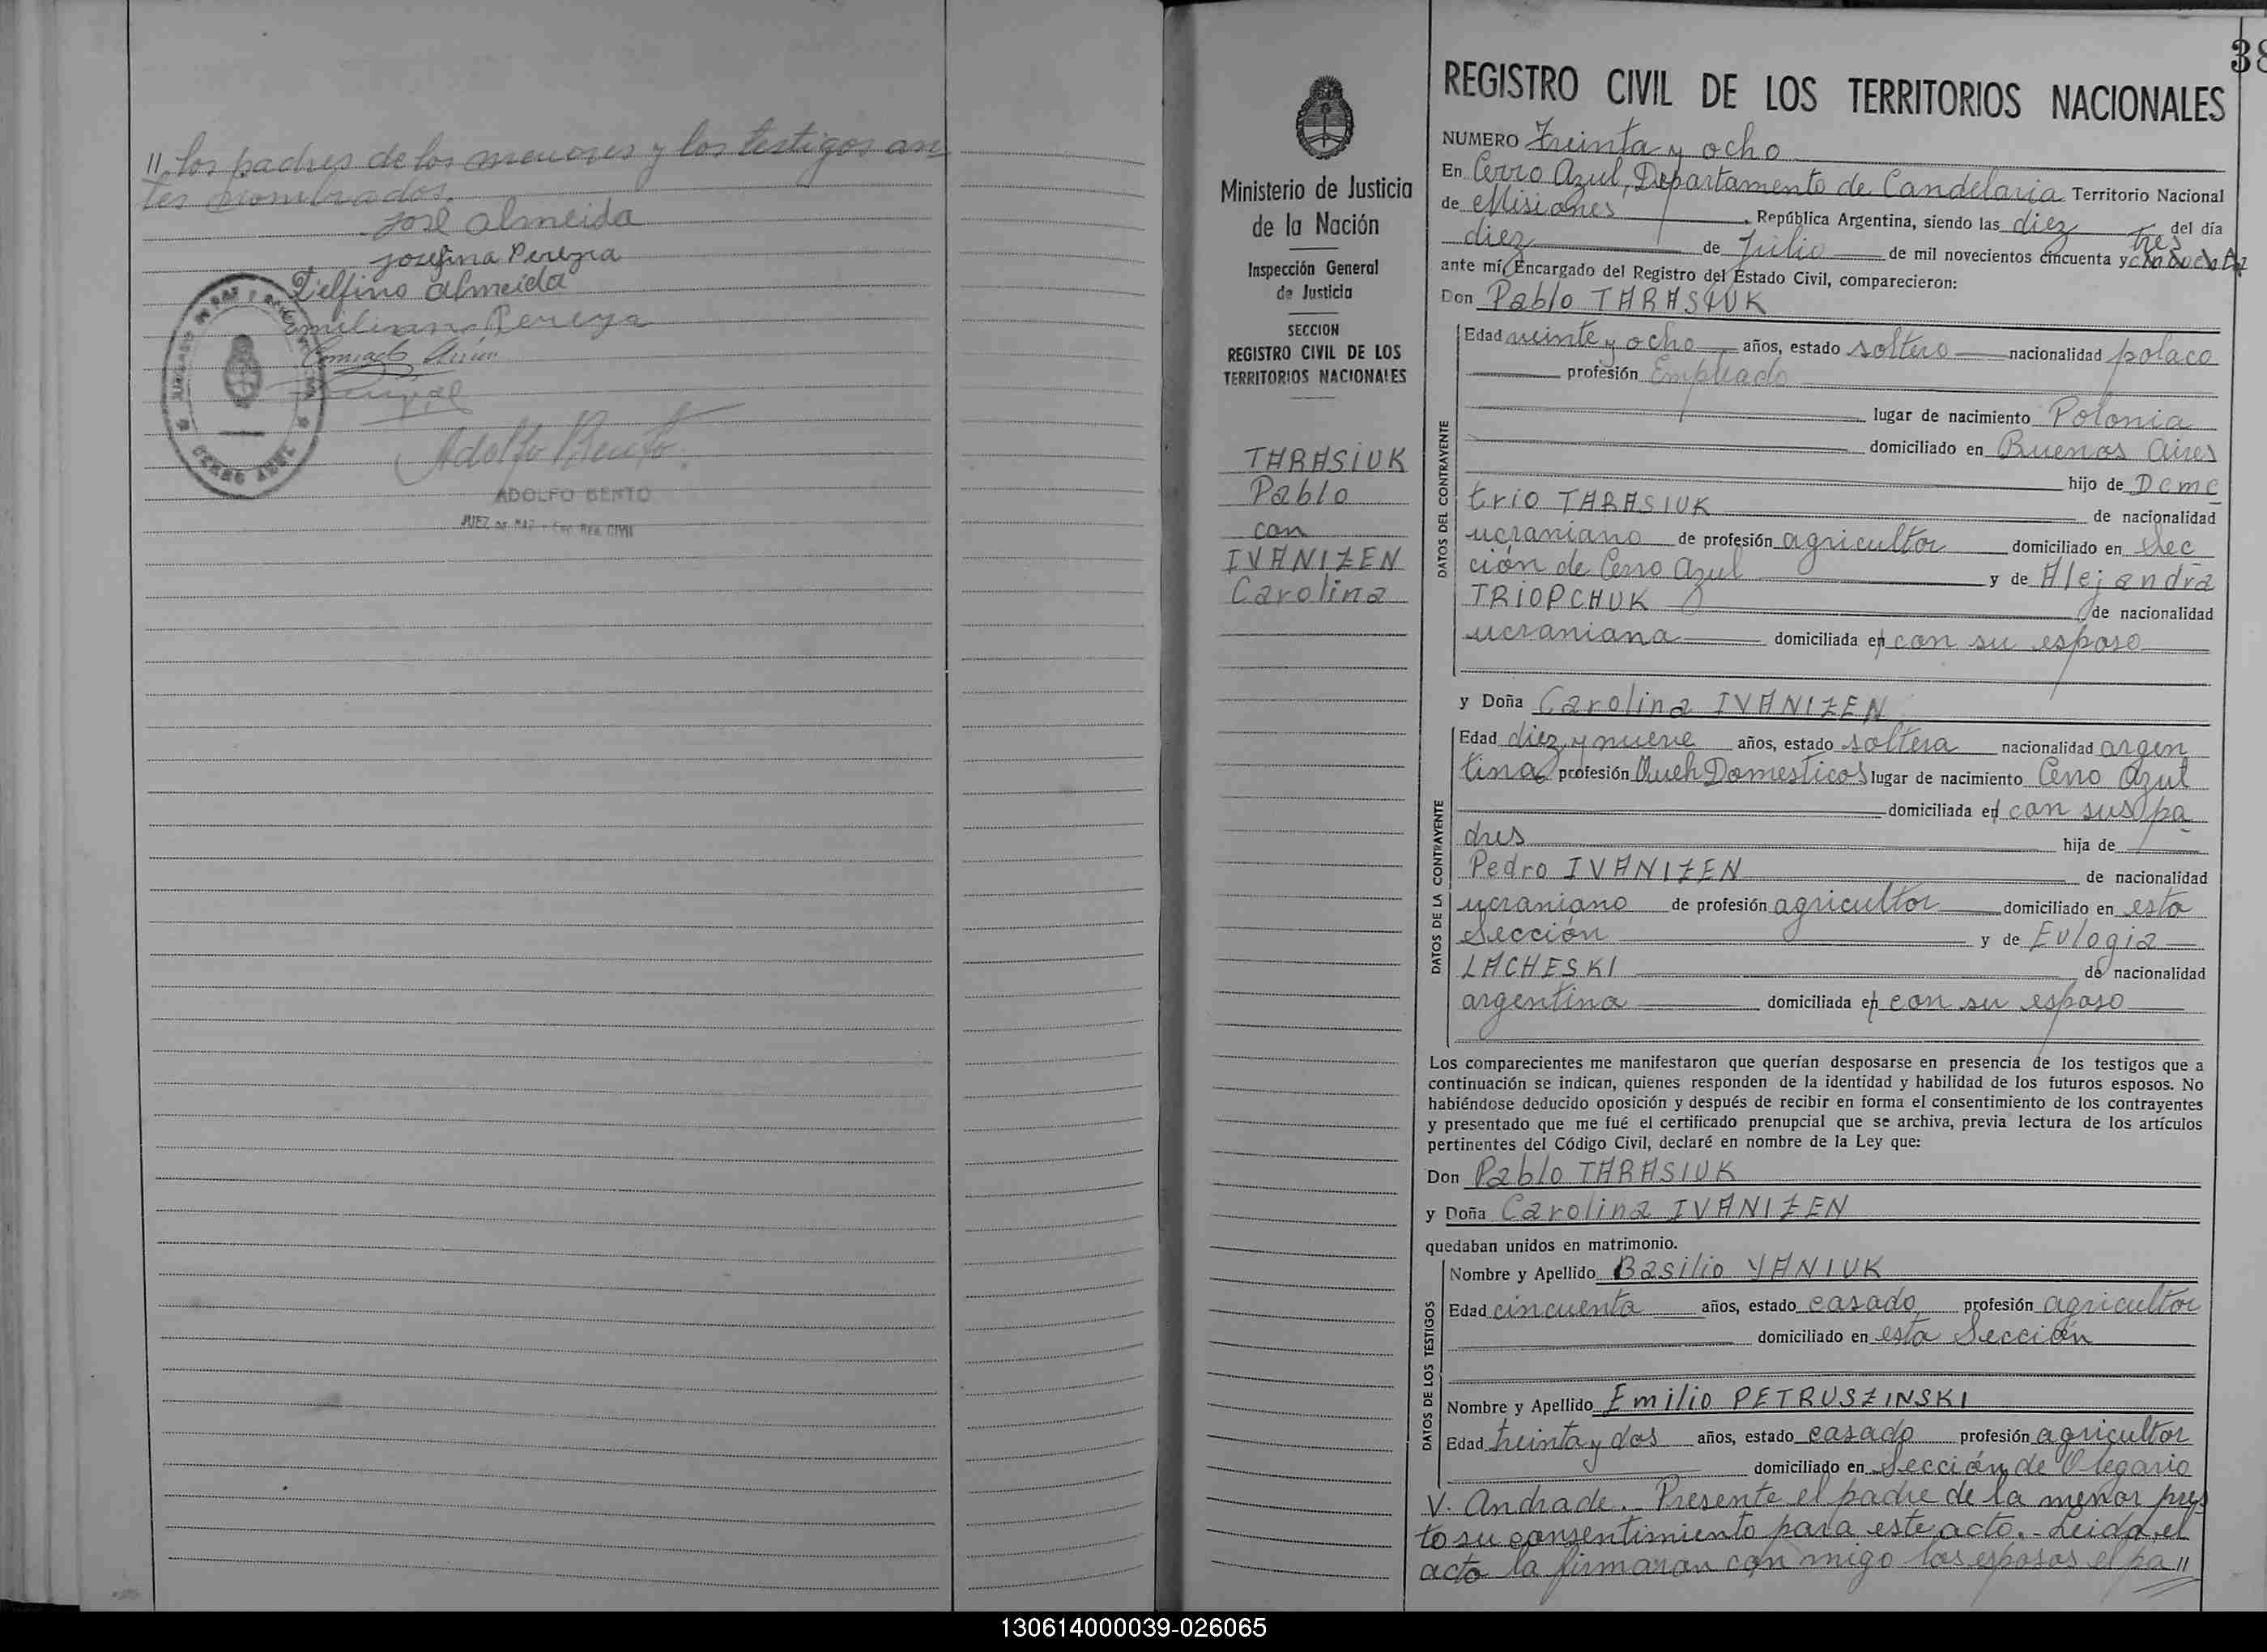 // los padres de los menores y los testigos an
tes nombrados.
José Almeida
Josefina Pereyra
Delfino Almeida
Emiliana Pereyra
Adolfo Bento
ADOLFO BENTO
JUEZ DE PAZ
CERRO AZUL
38
Ministerio de Justicia
de la Nación
Inspección General
de Justicia
SECCION
REGISTRO CIVIL DE LOS
TERRITORIOS NACIONALES
THRHSIUK
Pablo
con
IVANIZEN
Carolina
REGISTRO CIVIL DE LOS TERRITORIOS NACIONALES
NUMERO Treinta y ocho
En Cerro Azul, Departamento de Candelaria Territorio Nacional
de Misiones República Argentina, siendo las diez del día
diez de Julio de mil novecientos cincuenta y tres
ante mí, Encargado del Registro del Estado Civil, comparecieron:
Don Pablo THRASIUK
DATOS DEL CONTRAYENTE
Edad veinte y ocho años, estado soltero nacionalidad polaco
profesión Empleado
lugar de nacimiento Polonia
domiciliado en Buenos Aires
hijo de Deme
trio THRASIUK de nacionalidad
ucraniano de profesión agricultor domiciliado en Sec
ción de Cerro Azul y de Alejandra
TRIOPCHUK de nacionalidad
ucraniana domiciliada en con su esposo
y Doña Carolina IVANIZEN
DATOS DE LA CONTRAYENTE
Edad diez y nueve años, estado soltera nacionalidad argen
tina profesión Queh Domesticos lugar de nacimiento Cerro Azul
domiciliada en con sus pa
dres hija de
Pedro IVANIZEN de nacionalidad
ucraniano de profesión agricultor domiciliado en esta
Sección y de Eulogia
LACHESKI de nacionalidad
argentina domiciliada en con su esposo
Los comparecientes me manifestaron que querían desposarse en presencia de los testigos que a
continuación se indican, quienes responden de la identidad y habilidad de los futuros esposos. No
habiéndose deducido oposición y después de recibir en forma el consentimiento de los contrayentes
y presentado que me fué el certificado prenupcial que se archiva, previa lectura de los artículos
pertinentes del Código Civil, declaré en nombre de la Ley que:
Don Pablo THRASIUK
y Doña Carolina IVANIZEN
quedaban unidos en matrimonio.
DATOS DE LOS TESTIGOS
Nombre y Apellido Basilio YANIUK
Edad cincuenta años, estado casado profesión agricultor
domiciliado en esta Sección
Nombre y Apellido Emilio PETRUSZINSKI
Edad treinta y dos años, estado casado profesión agricultor
domiciliado en Sección de Olegario
V. Andrade.- Presente el padre de la menor pres
to su consentimiento para este acto.- Leida el
acto la firmaron con migo los esposos el pa //
130614000039-026065